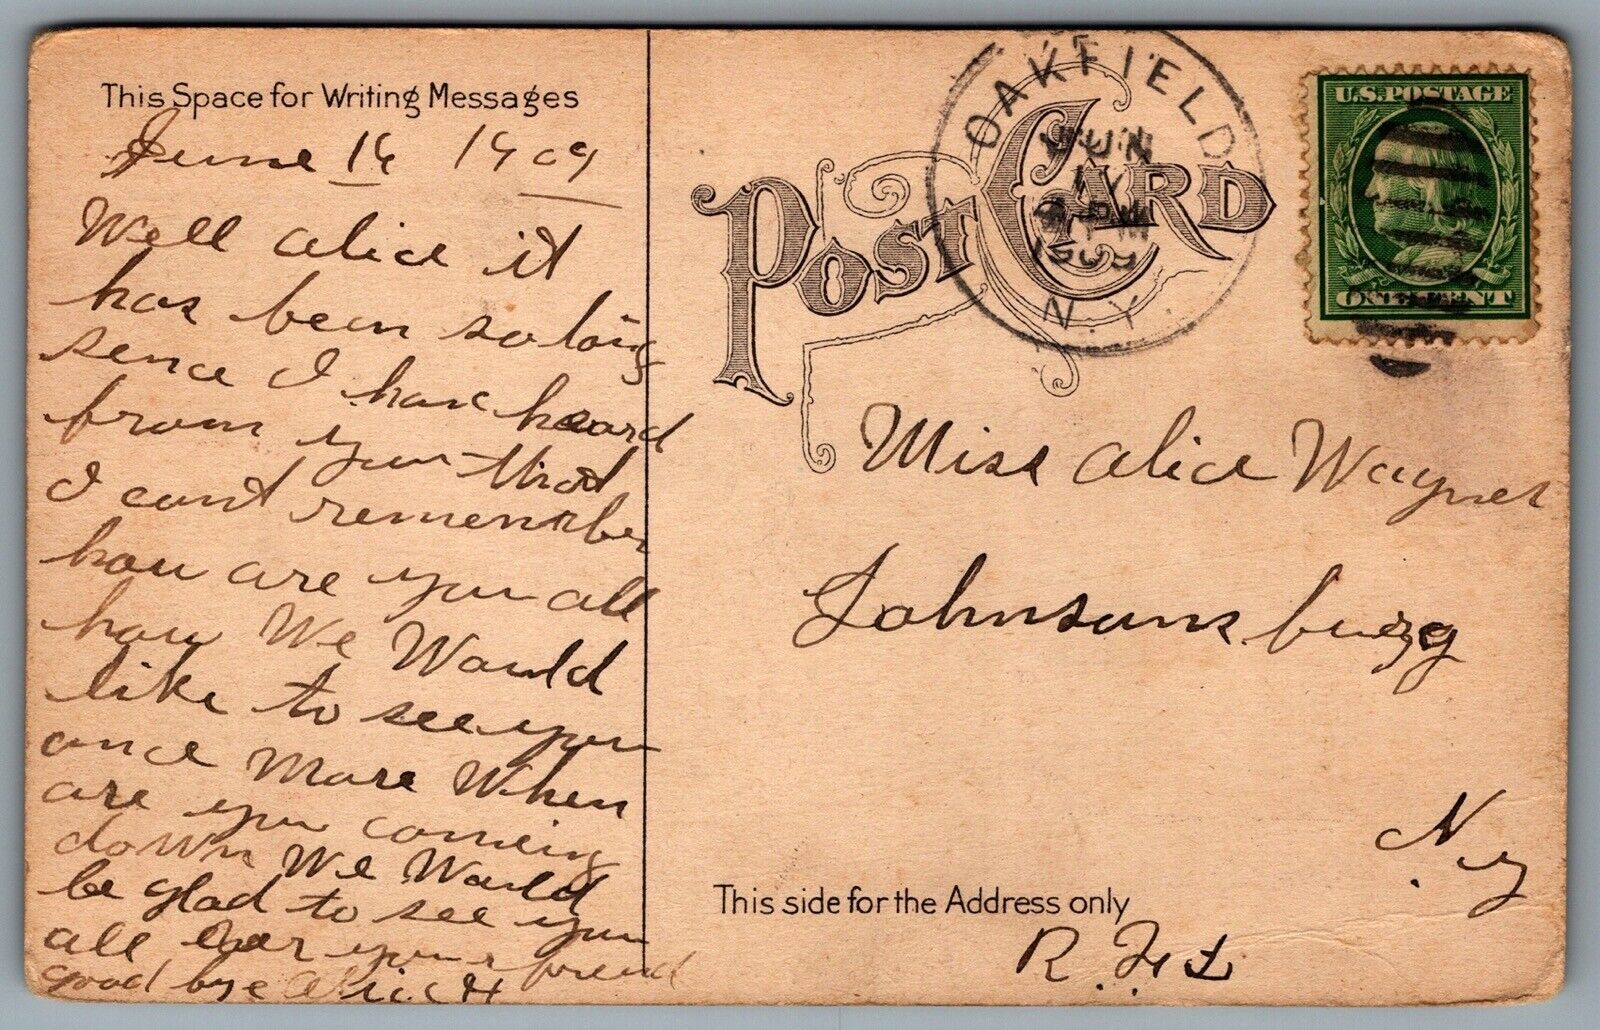 This Space for Writing Messages
June 1909
Well Alice it
has been so long
sence I have heard
from you that
I cant remember
how are you all
how We Would
like to see you
once More When
are you comeing
down We Would
be glad to see you
all from your friend
good bye Alice H
POST CARD
OAKFIELD
JUN
PM
1909
N.Y.
U.S.POSTAGE
ONE CENT
Miss Alice Wagner
Johnsonsburg
N.y
This side for the Address only
R.F.